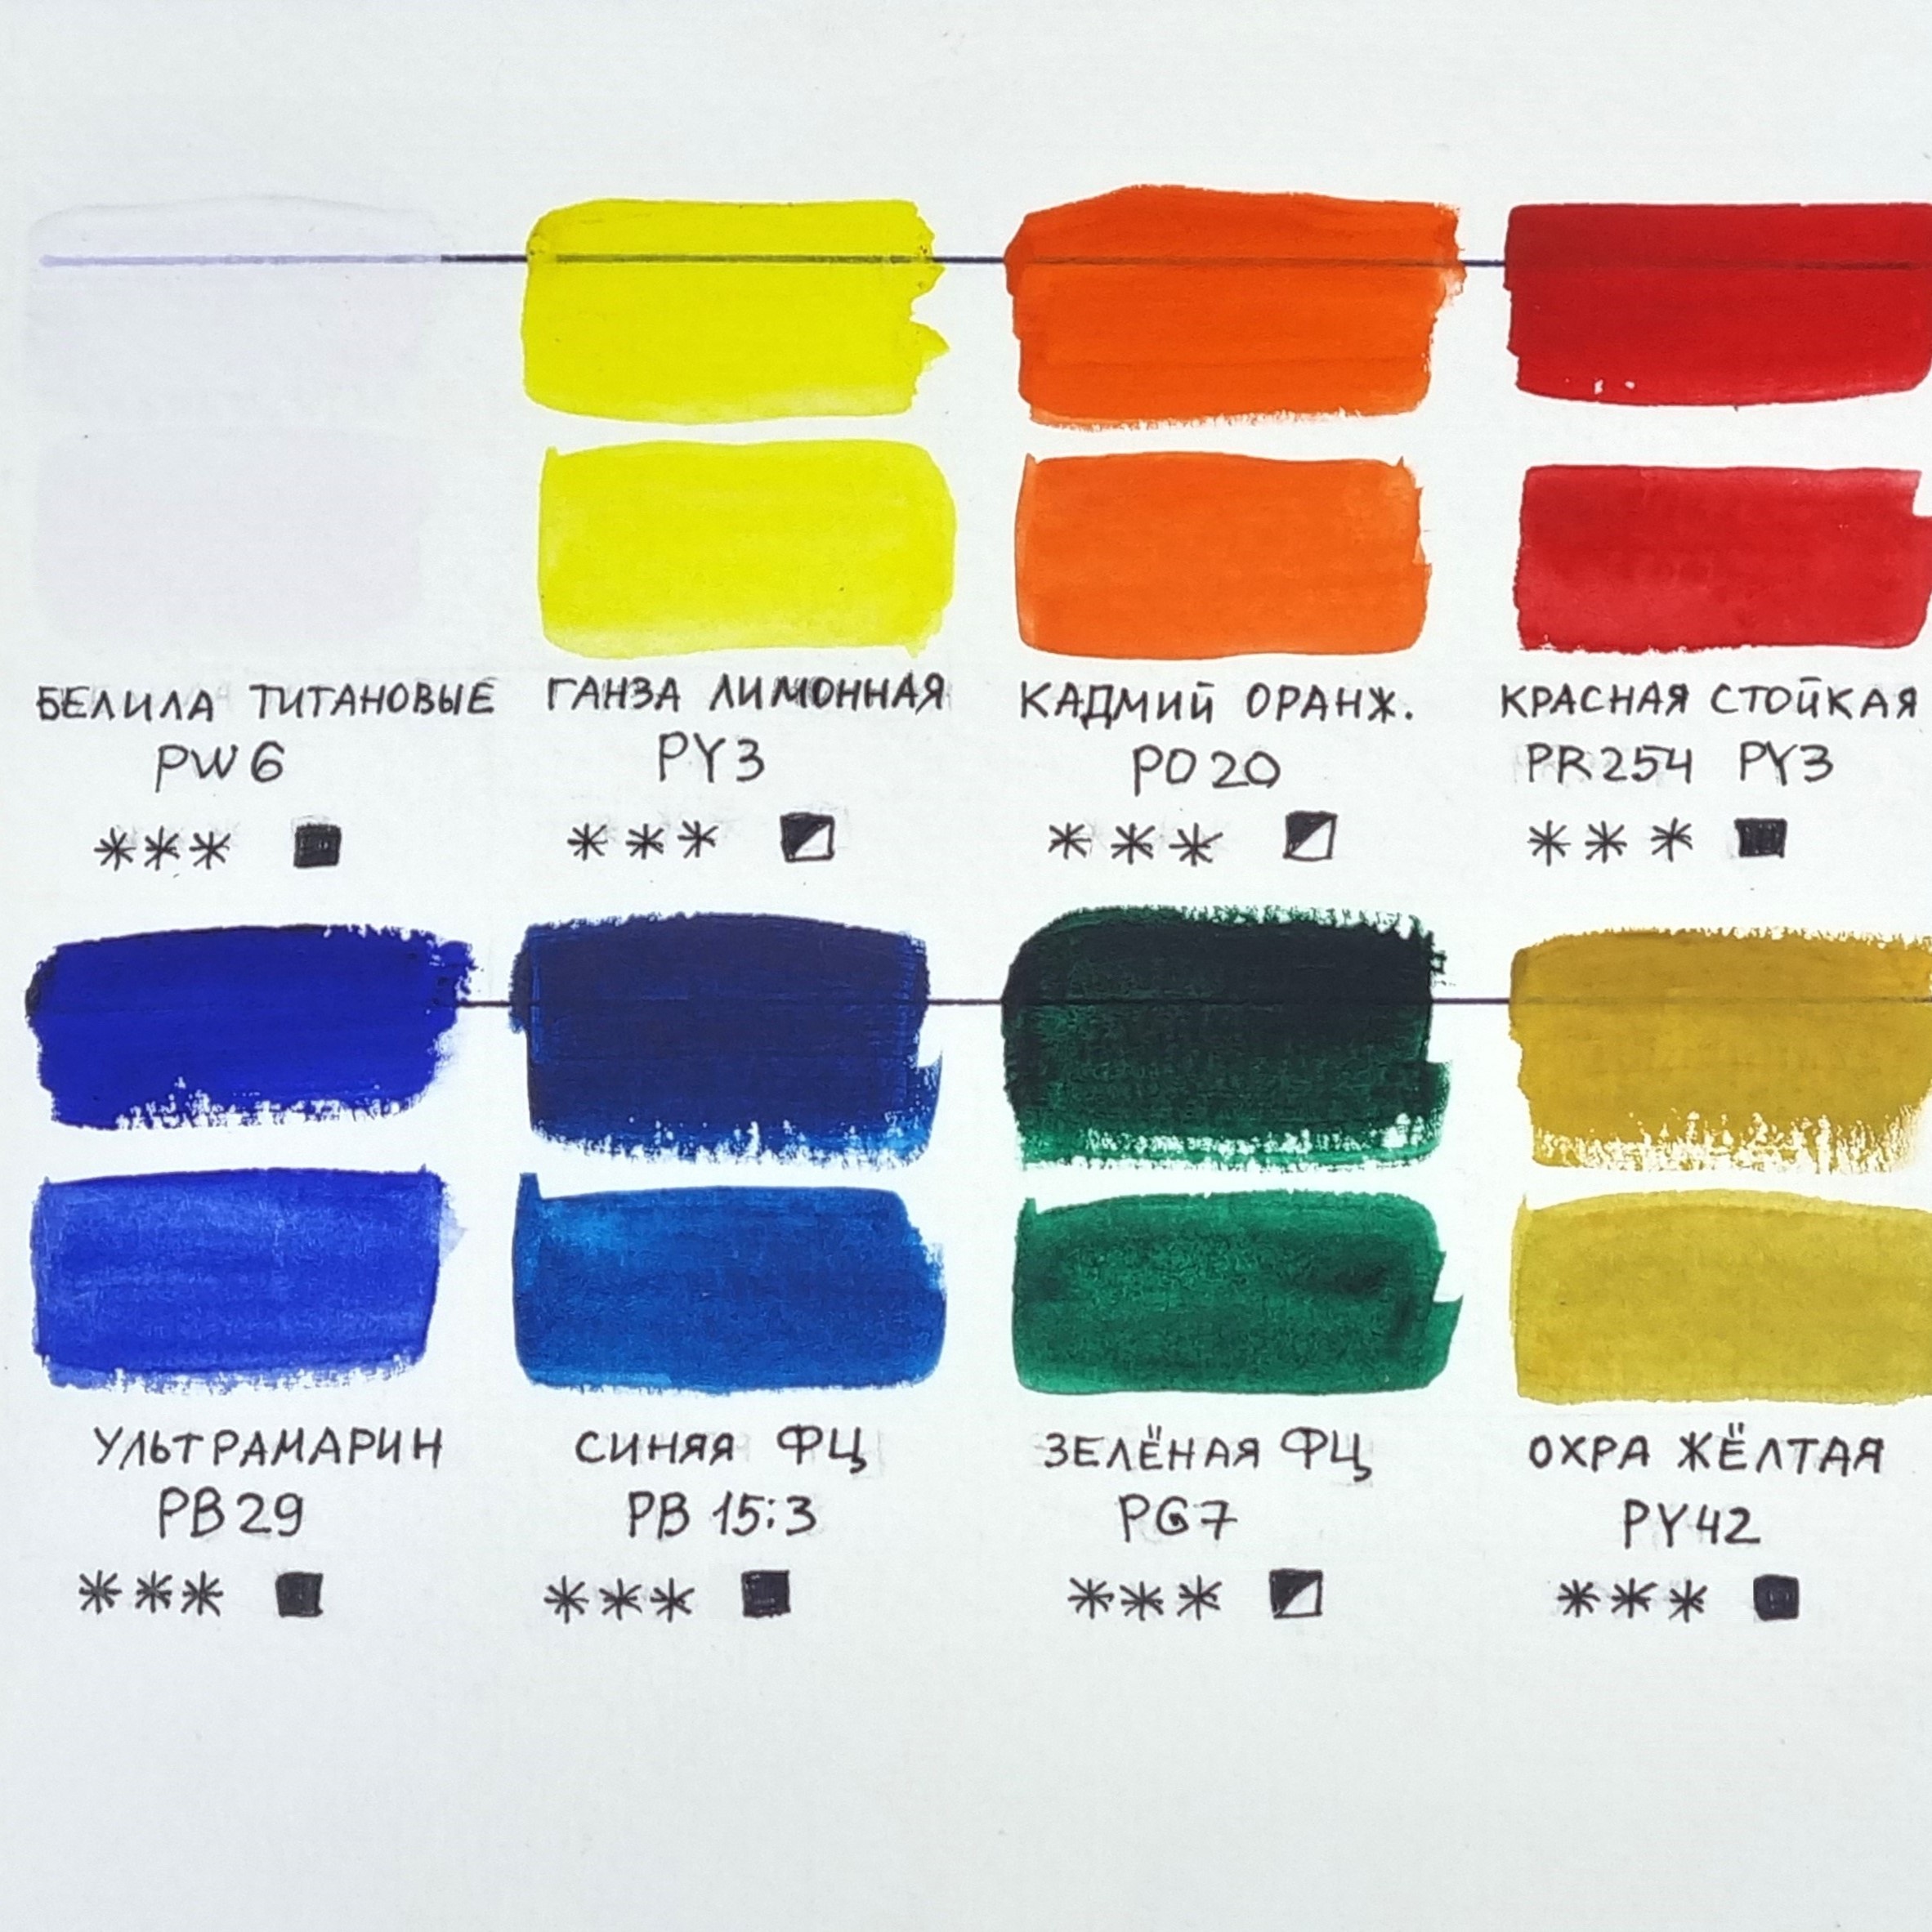 БЕЛИЛА ТИТАНОВЫЕ
PW6
ГАНЗА ЛИМОННАЯ
PY3
КАДМИЙ ОРАНЖ.
PO20
КРАСНАЯ СТОЙКАЯ
PR254 PY3
УЛЬТРАМАРИН
PB29
СИНЯЯ ФЦ
PB 15:3
ЗЕЛЁНАЯ ФЦ
PG7
ОХРА ЖЁЛТАЯ
PY42